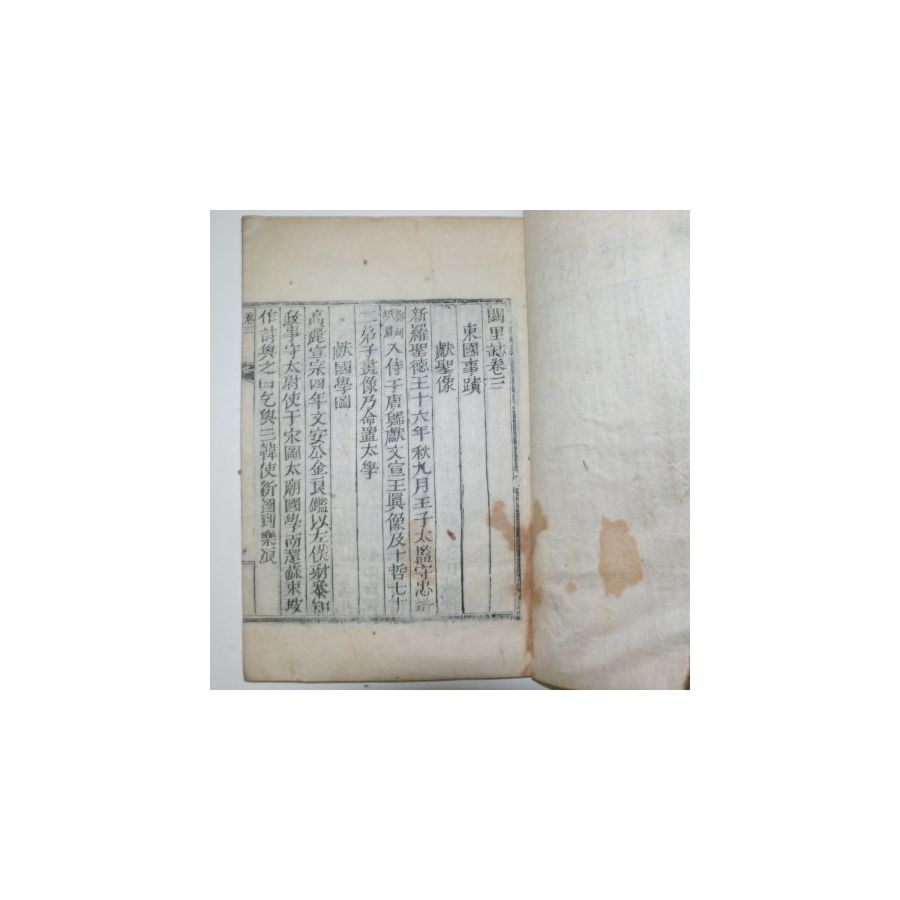 闕里誌卷三
東國事蹟
獻聖像
新羅聖德王十六年秋九月王子太監守忠
入侍于唐歸獻文宣王眞像及十哲七十
二弟子畫像乃命置太學
獻國學圖
高麗宣宗四年文安公金良鑑以左僕射叅知
政事守太尉使于宋圖太廟國學而還蘇東坡
作詩與之曰乞與三韓使新圖到樂浪
卷三